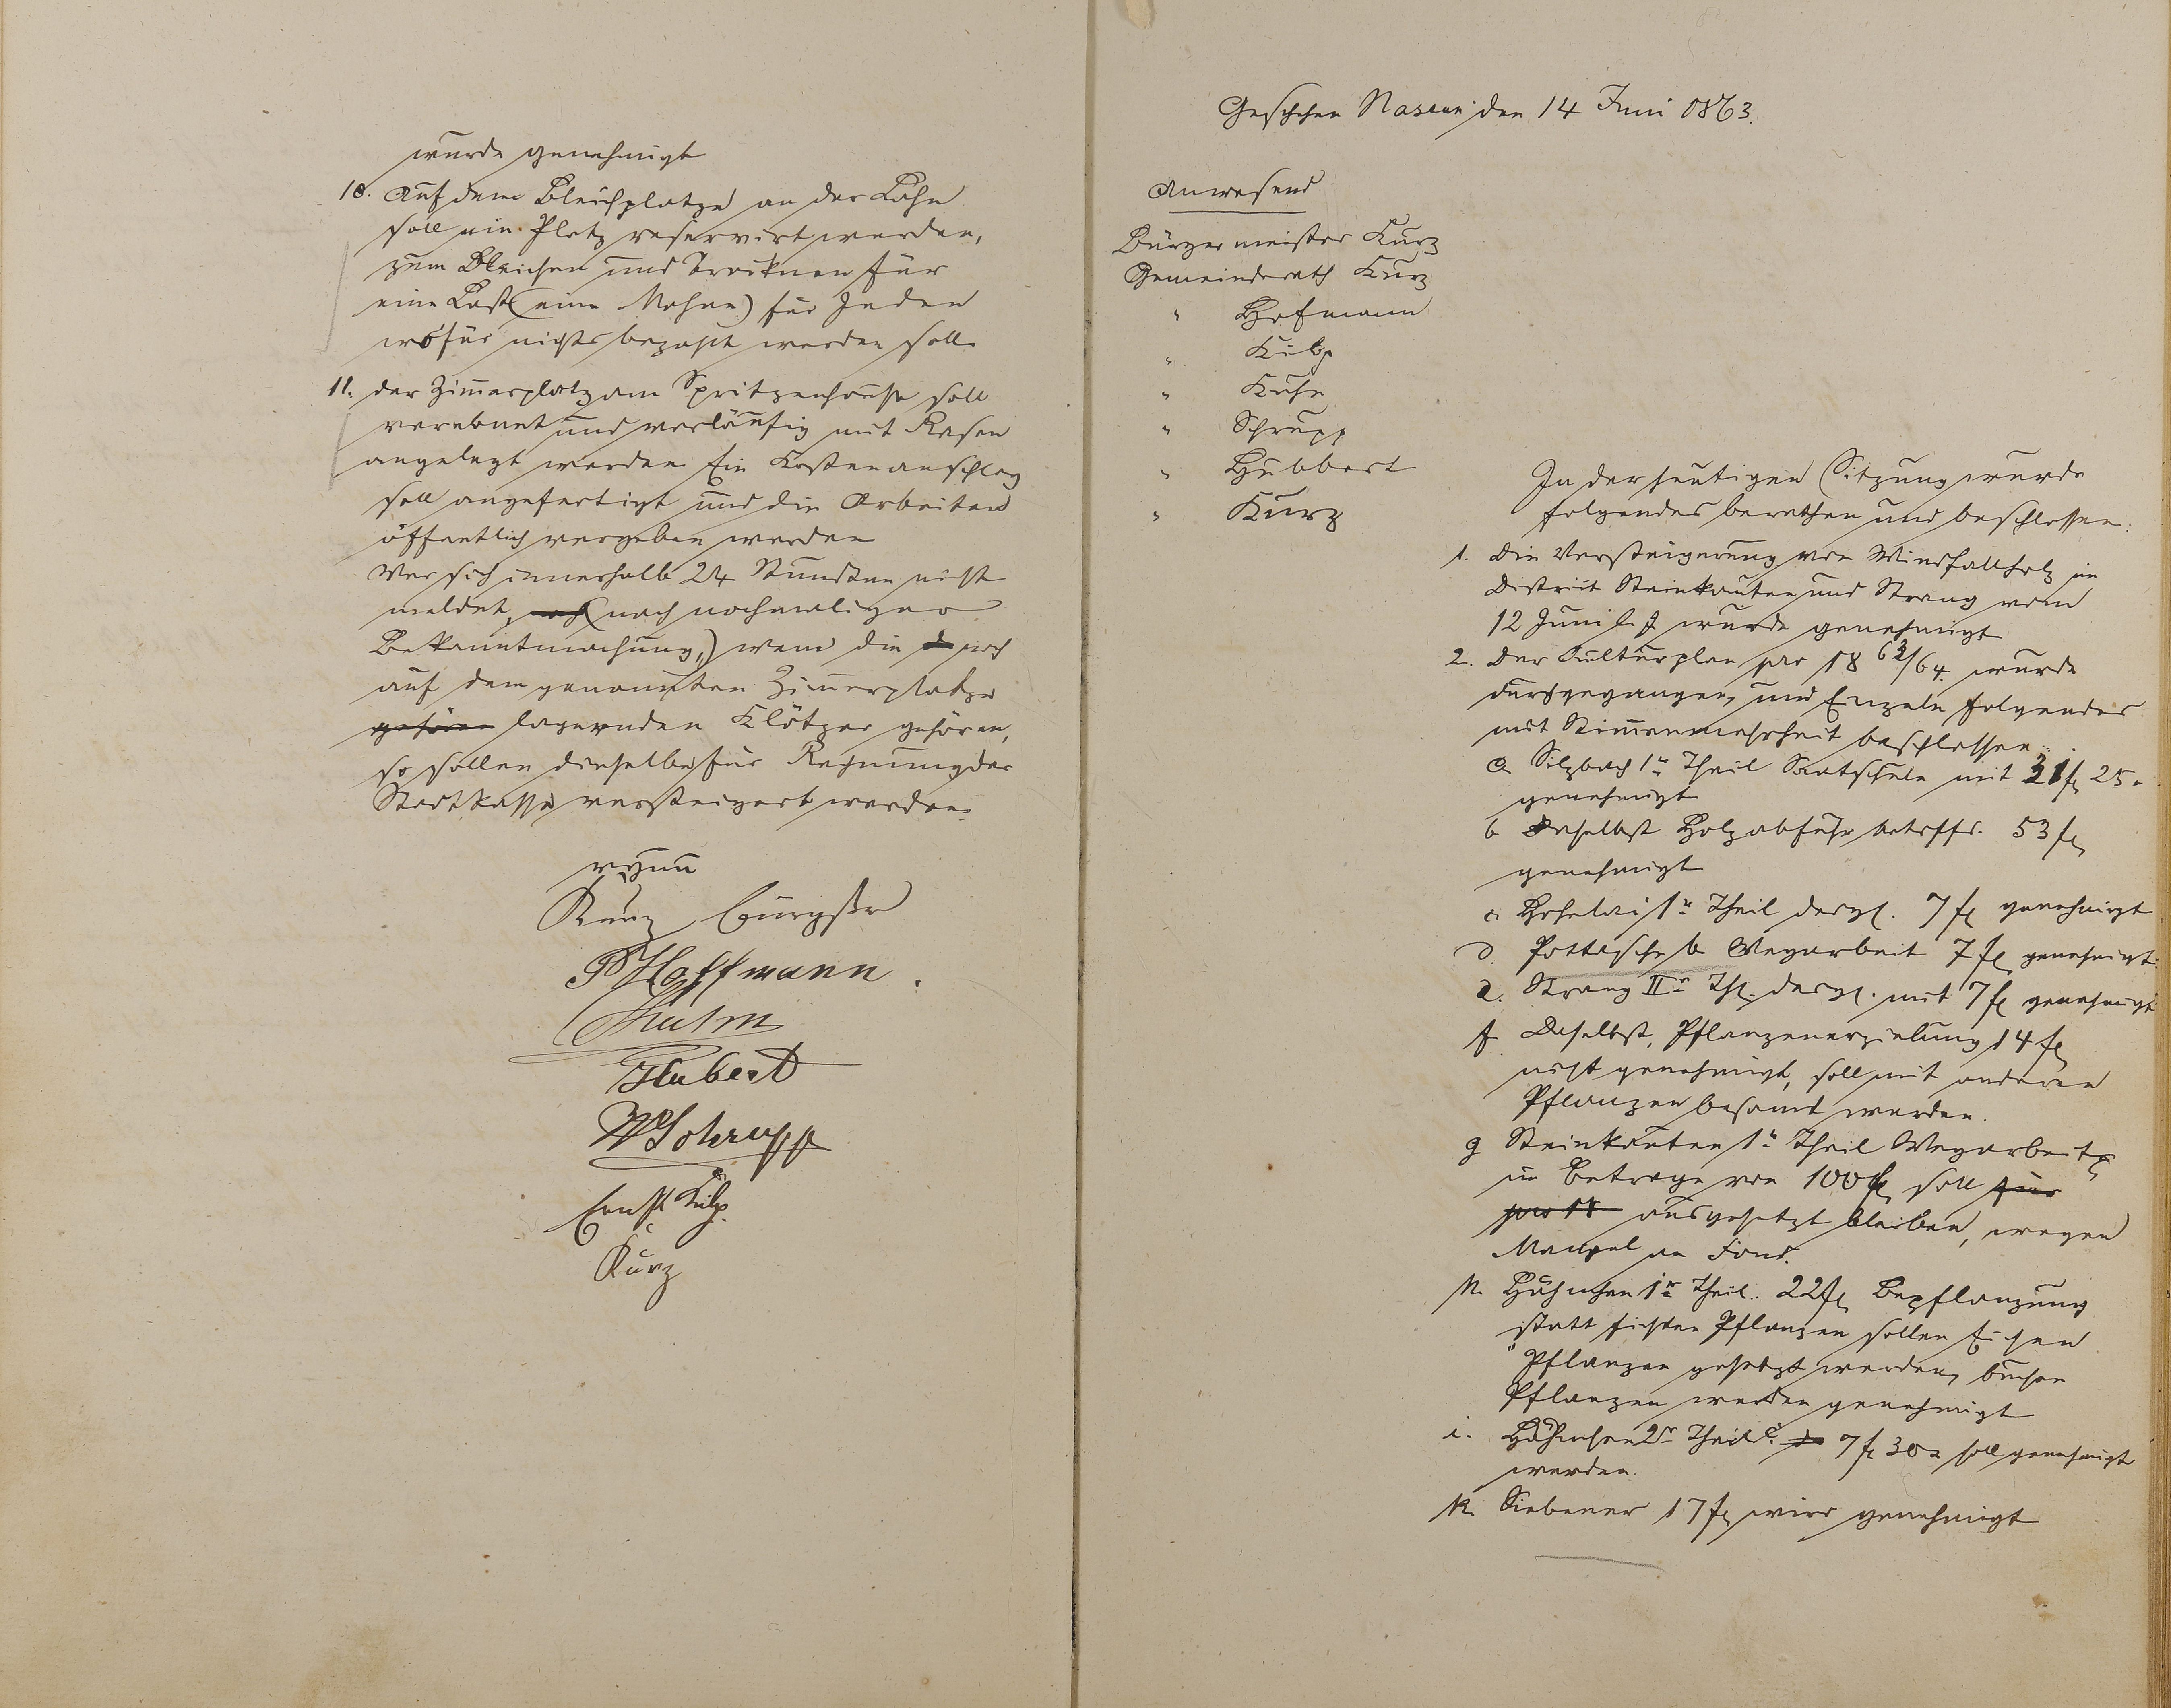 wurde genehmigt
10. Auf dem Bleichplatze an der Lahn
soll ein Platz reservirt werden,
zum Bleichen und Trocknen für
eine Last (eine Mahne) für Jeden
wofür nichts bezahlt werden soll
11. der Zimmerplatz am Spritzenhause soll
verebnet und vorläufig mit Rasen
angelegt werden. Ein Kostenanschlag
soll angefertigt und die Arbeiten
öffentlich vergeben werden
Wer sich innerhalb 24 Stunden nicht
meldet, noch (nach nochmaliger
Bekanntmachung,) wem die d noch
auf dem genannten Zimmerplatze
gehören lagernden Klötzer gehören,
so sollen dieselbe für Rechnung der
Stadtkasse versteigert werden.
Kurz Bürgstr
P Hoffmann.
Kuhn
Hubert
W Schrupp
Ernst Külp.
Kurz
Geschehen Nassau den 14 Juni 1863.
Anwesend
Bürgermeister Kurz
Gemeinderath Kurz
" Hofmann
" Külp
" Kuhn
" Schrupp
" Hubbert
" Kurz
In der heutigen Sitzung wurde
folgendes berathen und beschlossen:
1. Die Versteigerung von Windfallholz im
District Steinkauten und Strang vom
12 Juni l. J wurde genehmigt
2. Der Culturplan pro 18 63/64 wurde
durchgegangen, und Einzeln folgendes
mit Stimmenmehrheit beschlossen.
a. Silzbach 1r Theil Saatschule mit 21 fl 25.
genehmigt
b Daselbst Holzabfuhr betrffd. 53 fl
genehmigt
c. 1r Theil desgl. 7 fl genehmigt
d. Pottasche b Wegarbeit 7 fl genehmigt.
e. Strang IIr Thl. desgl. mit 7 fl genehmigt
f. Daselbst, Pflanzenerziehung 14 fl
nicht genehmigt, soll mit anderen
Pflanzen besamt werden.
g Steinkauten 1r Theil Wegarbeit
im Betrage von 100 fl soll für
pro 18 ausgesetzt bleiben, wegen
Mangel an Fond.
h. Hähnchen 1r Theil. 22 fl Bepflanzung
statt fichten Pflanzen sollen Eichen
Pflanzen gesetzt werden, buchen
Pflanzen werden genehmigt
i. Hähnchen 2r Theil. 7 fl 30 x soll genehmigt
werden.
k. Siebener 17 fl wird genehmigt